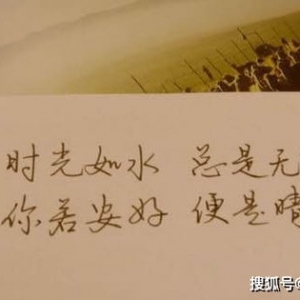 时光如水 总是无
你若安好 便是晴
搜狐号@